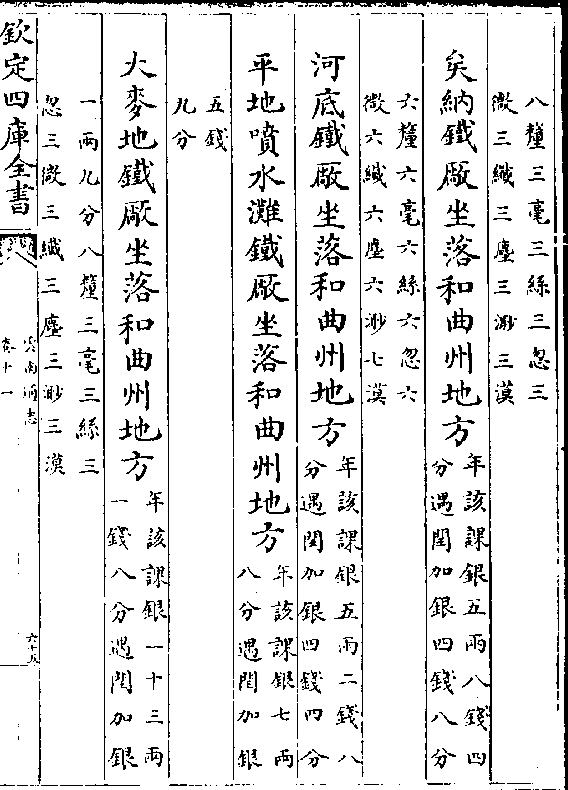 八釐三毫三絲三忽三
微三纖三塵三渺三漠
矣納鐵廠坐落和曲州地方
年該課銀五兩八錢四
分遇閏加銀四錢八分
六釐六毫六絲六忽六
微六纖六塵六渺七漠
河底鐵廠坐落和曲州地方
年該課銀五兩二錢八
分遇閏加銀四錢四分
平地噴水灘鐵廠坐落和曲州地方
年該課銀七兩
八分遇閏加銀
五錢
九分
大麥地鐵廠坐落和曲州地方
年該課銀一十三兩
一錢八分遇閏加銀
一兩九分八釐三毫三絲三
忽三微三纖三塵三渺三漠
欽定四庫全書
雲南通志
卷十一
六十五